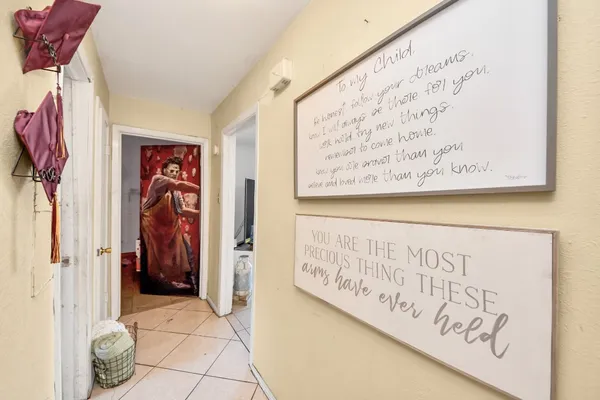 To my Child,
Be honest, follow your dreams.
know I will always be there for you.
work hard, try new things.
remember to come home.
know you are braver than you
and loved more than you know.
YOU ARE THE MOST
PRECIOUS THING THESE
arms have ever held